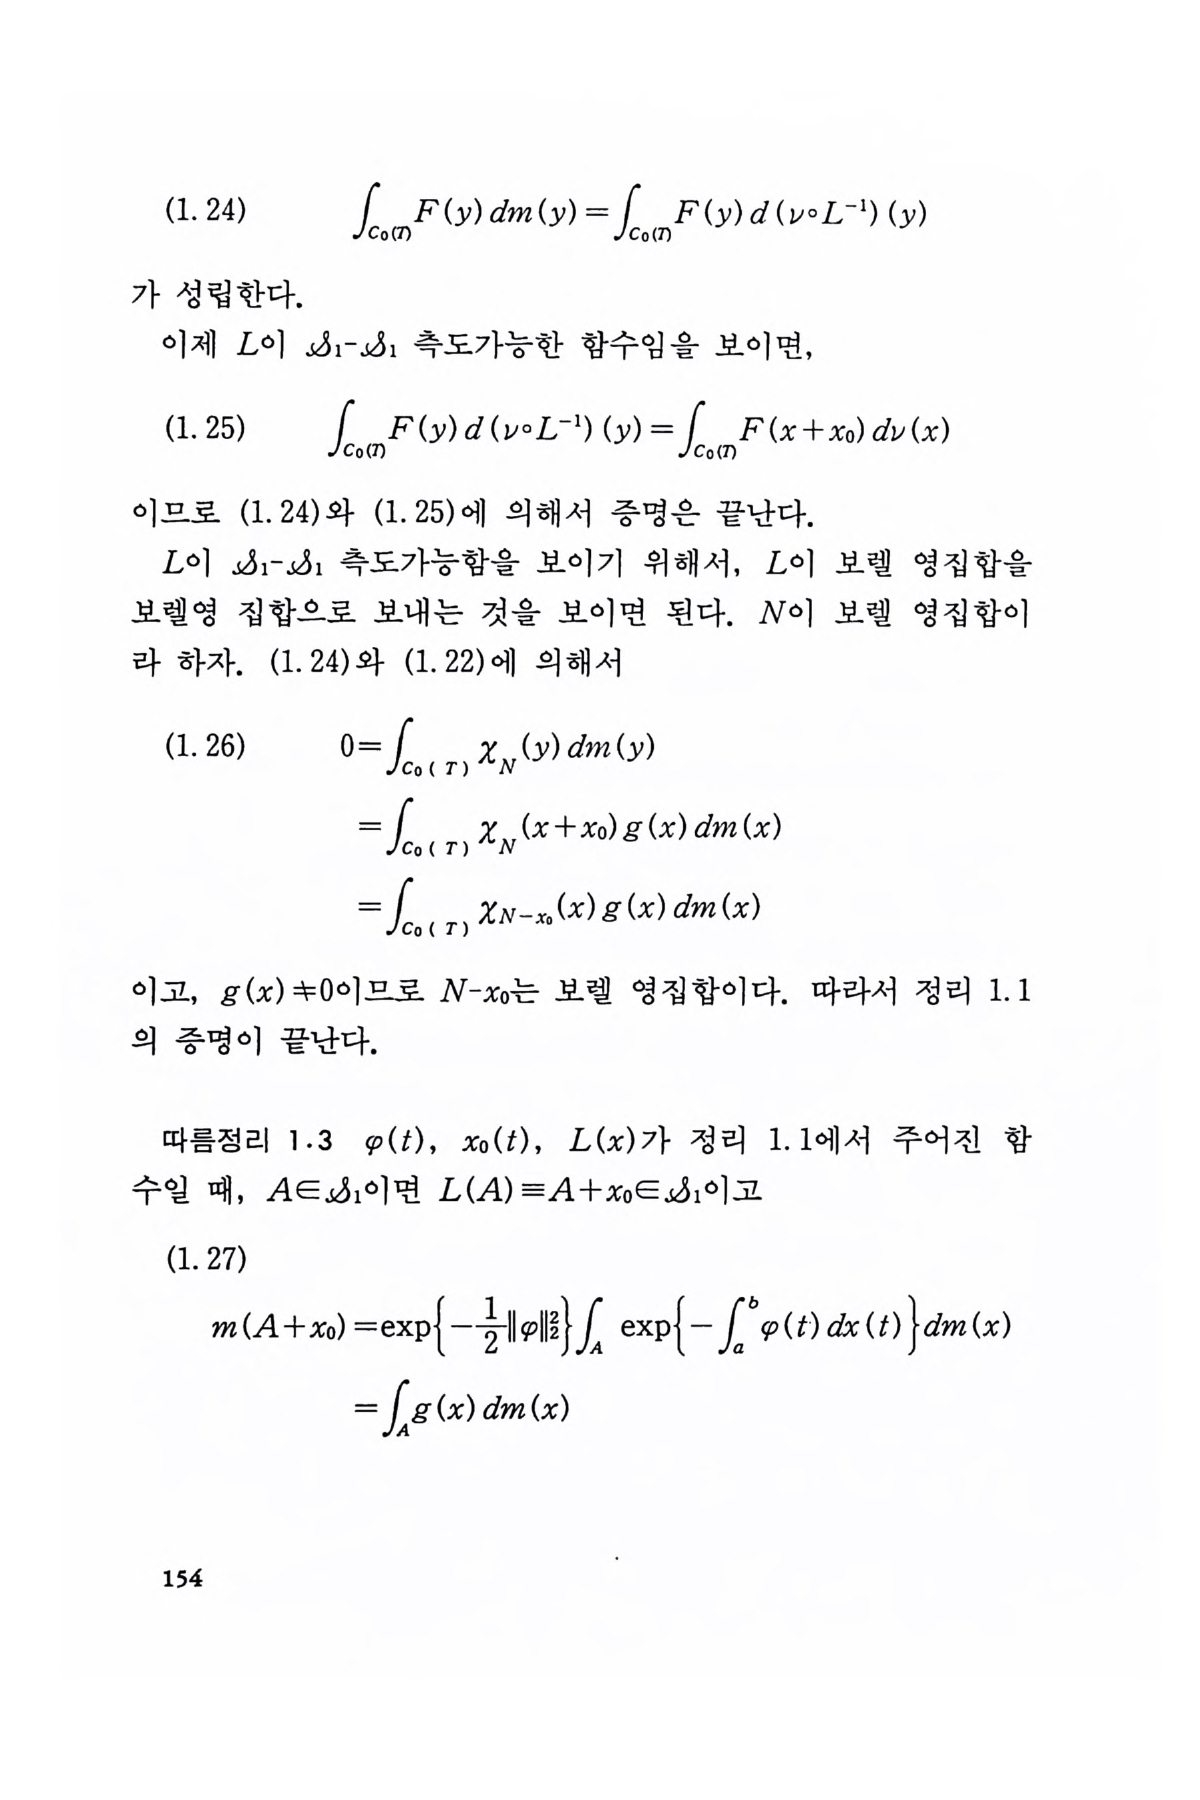 (1. 24) ∫_{C₀(T)} F(y) dm(y) = ∫_{C₀(T)} F(y) d(ν∘L⁻¹)(y)
가 성립한다.
이제 L이 𝒮₁-𝒮₁ 측도가능한 함수임을 보이면,
(1. 25) ∫_{C₀(T)} F(y) d(ν∘L⁻¹)(y) = ∫_{C₀(T)} F(x+x₀) dν(x)
이므로 (1. 24)와 (1. 25)에 의해서 증명은 끝난다.
L이 𝒮₁-𝒮₁ 측도가능함을 보이기 위해서, L이 보렐 영집합을
보렐영 집합으로 보내는 것을 보이면 된다. N이 보렐 영집합이
라 하자. (1. 24)와 (1. 22)에 의해서
(1. 26) 0=∫_{C₀( T )} χ_N(y) dm(y)
=∫_{C₀( T )} χ_N(x+x₀) g(x) dm(x)
=∫_{C₀( T )} χ_{N-x₀}(x) g(x) dm(x)
이고, g(x)≠0이므로 N-x₀는 보렐 영집합이다. 따라서 정리 1. 1
의 증명이 끝난다.
따름정리 1.3 φ(t), x₀(t), L(x)가 정리 1. 1에서 주어진 함
수일 때, A∈𝒮₁이면 L(A)≡A+x₀∈𝒮₁이고
(1. 27)
m(A+x₀)=exp{-1/2‖φ‖₂²}∫_A exp{-∫_a^b φ(t) dx(t)}dm(x)
=∫_A g(x) dm(x)
154